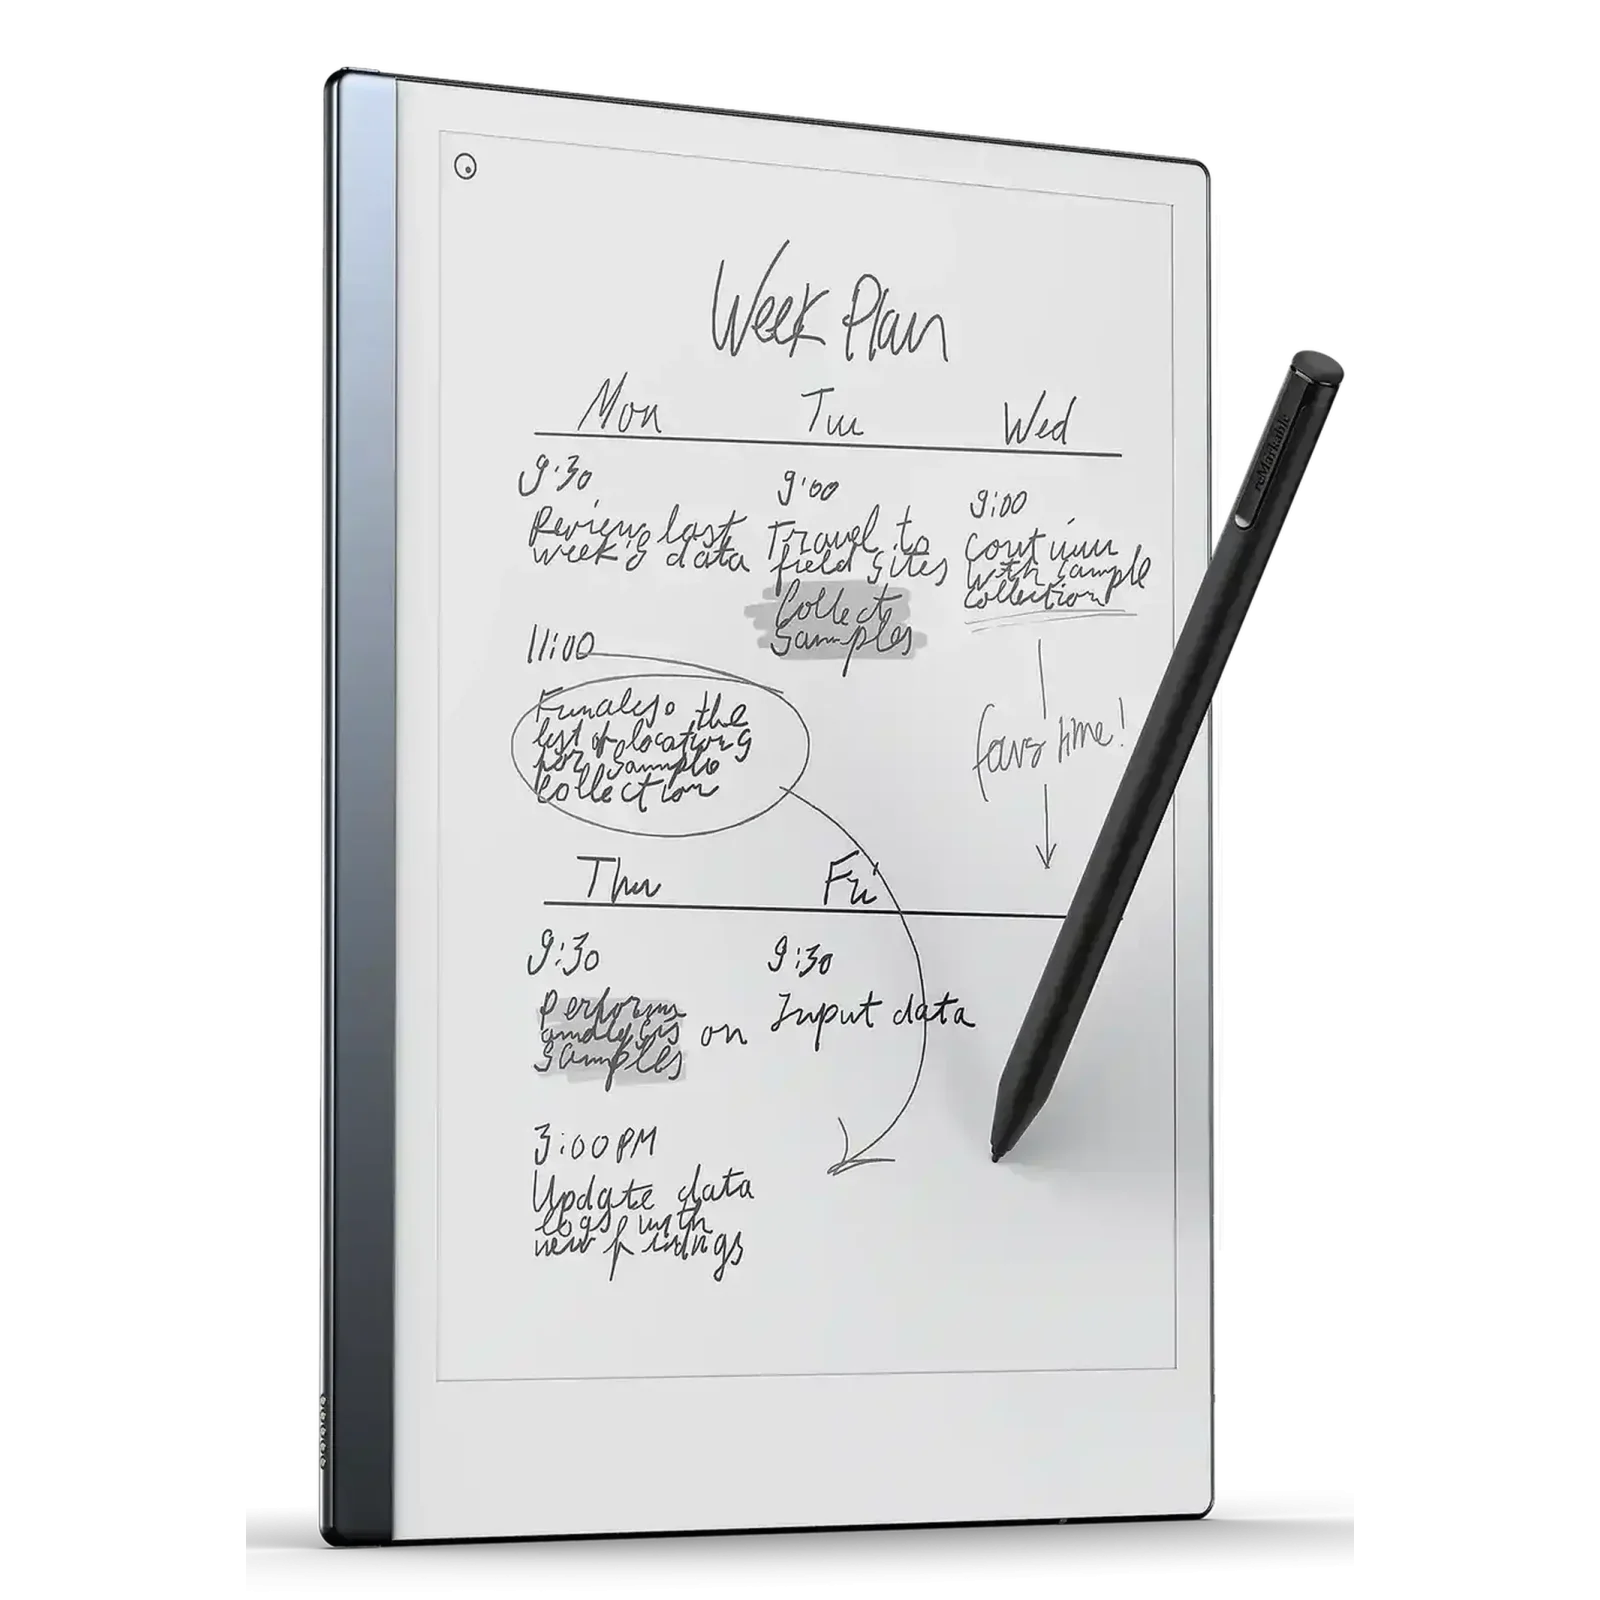 Week Plan
Mon Tue Wed
9:30
Review last
week's data
11:00
Finalize the
list of locations
for sample
collection
9:00
Travel to
field sites
Collect
samples
9:00
Continue
with sample
collection
time!
Thu Fri
9:30
Perform
analysis on
samples
3:00 PM
Update data
logs with
new findings
9:30
Input data
reMarkable